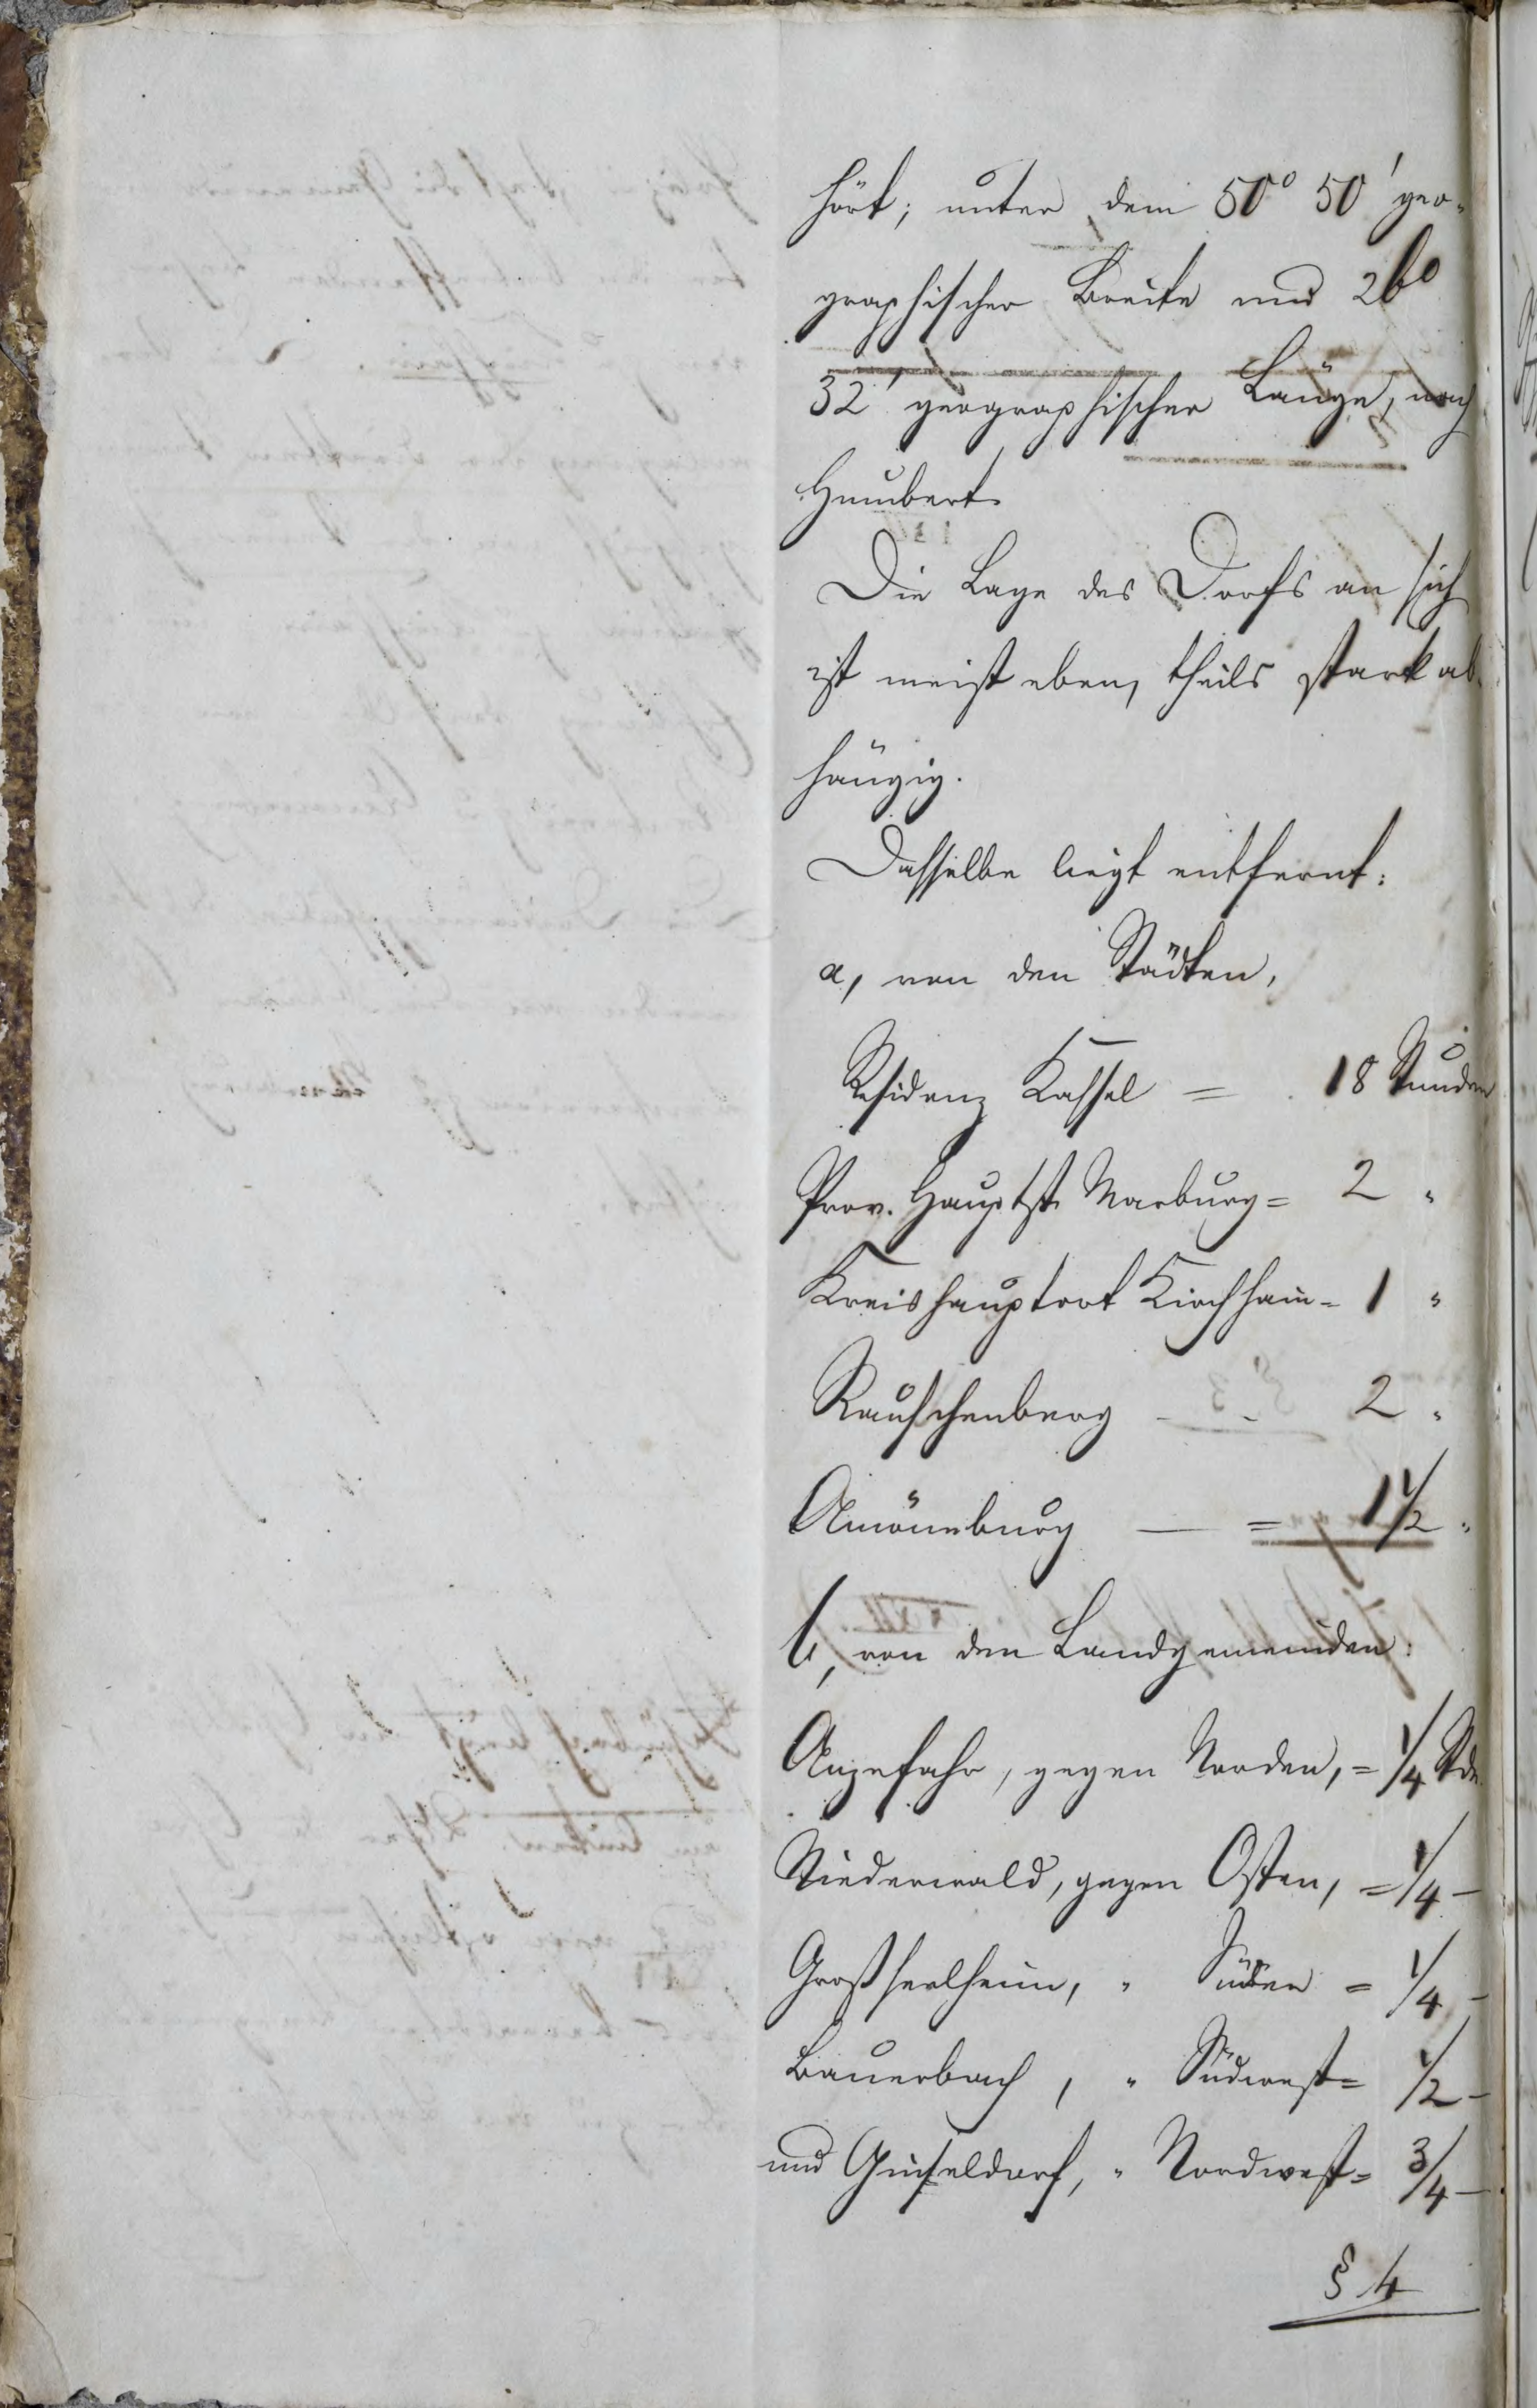 hört; unter dem 50° 50' geo-
graphischer Breite und 26°
32' geographischer Länge, nach
Humbert.
Die Lage des Dorfs an sich
ist meist eben, theils stark ab-
hängig.
Dasselbe liegt entfernt:
a, von den Städten,
Residenz Kassel = 18 Stunden
Prov. Hauptst. Marburg = 2 "
Kreishauptort Kirchhain = 1 "
Rauschenberg - - 2 "
Amöneburg — = 1 1/2 "
b, von den Landgemeinden:
Anzefahr, gegen Norden, = 1/4 Std.
Niederwald, gegen Osten, = 1/4 -
Großseelheim, " Süden = 1/4 -
Bauerbach, " Südwest = 1/2 -
und Ginseldorf, " Nordwest = 3/4 -
§ 4